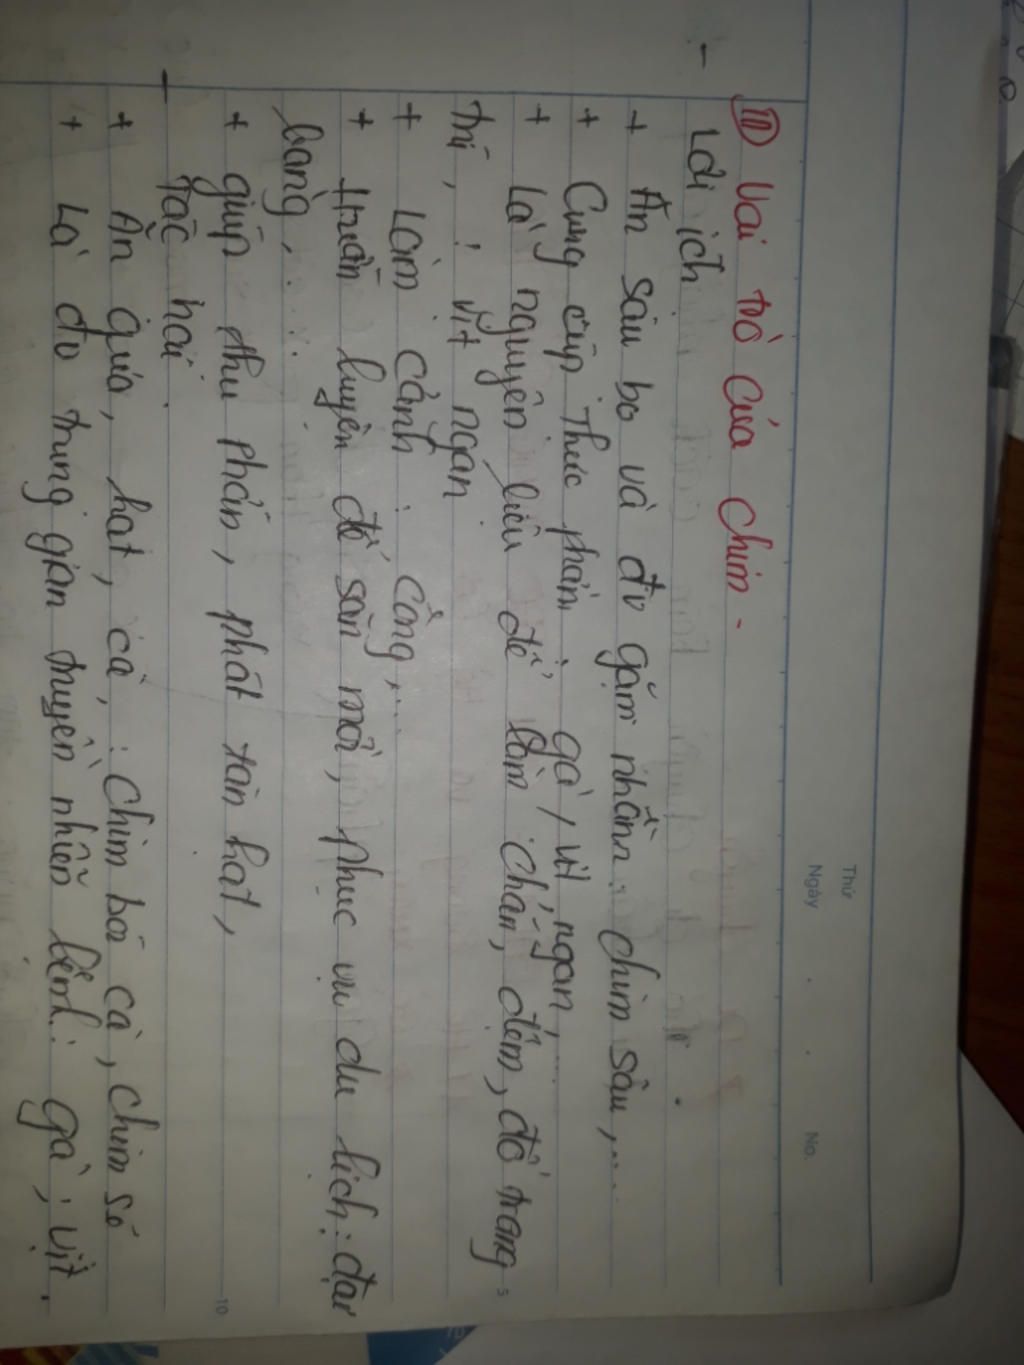 Thứ
Ngày
No.
III Vai trò của chim.
- Lợi ích
+ Ăn sâu bọ và đv gặm nhấm: chim sâu,...
+ Cung cấp thực phẩm: gà, vịt, ngan,...
+ Là nguyên liệu để làm chăn, đệm, đồ trang
trí, : vịt ngan
+ Làm cảnh: công,...
+ Huấn luyện để săn mồi, phục vụ du lịch: đại
bàng,...
+ giúp thụ phấn, phát tán hạt,
- tác hại.
+ Ăn quả, hạt, cá: chim bói cá, chim sẻ
+ Là đv trung gian truyền nhiễm bệnh: gà, vịt.
5
10